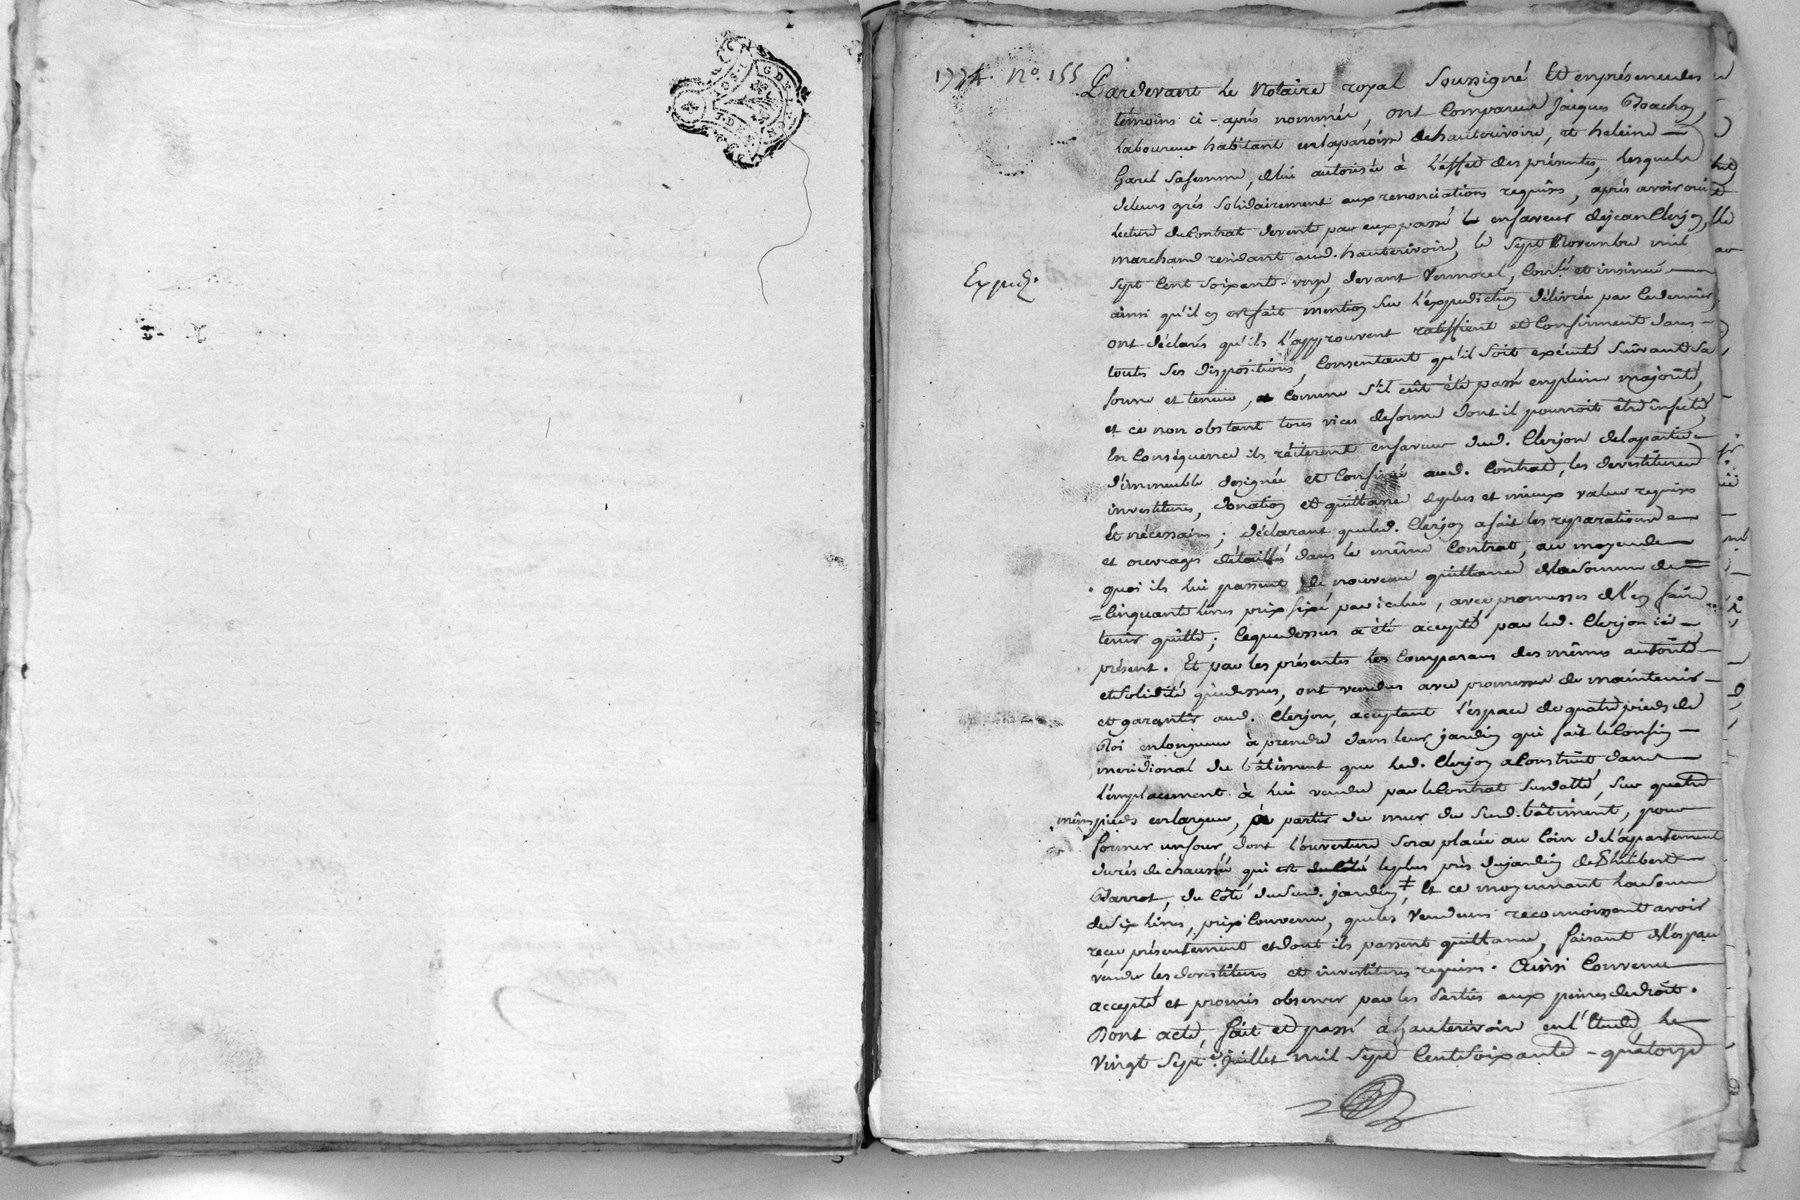 1774. N°. 155
Pardevant Le Notaire royal Soussigné Et enprésencedes
témoins ci-après nommés, ont Comparus Jacques
laboureur habitant enlaparoisse dehauterivoire, et heleine
Garel Safemme, delui autorisée à L'effet des présentes, Lesquels
deleurs grés Solidairement auxrenonciations requises, après avoir oui
lecture duContrat devente par euxpassé enfaveur dejean Clerjon,
marchand residant aud. hauterivoire, le Sept Novembre mil
Expedi.
Sept Cent Soixante-onze, devant Vermorel, Conlé et insinué
ainsi qu'il en estfait mention Sur L'expedition délivrée par Cedernier,
ont déclarés qu'ils L'approuvent ratiffient et Confirment dans
toutes Ses dispositions, Consentant qu'il Soit exécuté Suivant Sa
forme et teneur, Comme S'il eût été passé enpleine majorité,
et ce non obstant tous vices deforme dont il pourroit être infecté
En Conséquence ils réiterent enfaveur dud. Clerjon delapartie
d'immeuble désignée et Confinée aud. Contrat, les devestitures
investitures, donation et quittance deplus et mieux value requises
Et nécessaires; déclarant queled. Clerjon afait les reparations
et ouvrages détaillés dans le même Contrat, au moyende
quoi ils lui passent de nouveau quittance delasomme de
Cinquante livres prix fixé par icelui, avec promesses del'en faire
tenir quitte; Cequedessus a été accepté par led. Clerjon ici
présent. Et par les présentes les Comparans des mêmes autorité
etSolidité quedessus, ont vendus avec promesses de maintenir
et garantir aud. Clerjon, acceptant L'espace de quatre pieds de
Roi enlongueur à prendre dans leur jardin qui fait leConfin
meridional du bâtiment que led. Clerjon aConstruit dans
l'emplacement à lui vendu par leContrat Susdatté, Sur quatre
mêmes pieds enlargeur, à partir du mur du Susd. bâtiment, pour
former unfour, dont l'ouverture Sera placée au Coin del'apartement
durés de chaussée qui est leplus près dujardin de Philibert
du Côté dusud. jardin, Et ce moyennant laSomme
deSix livres, prix Convenu, queles Vendeurs reconnoissent avoir
recu présentement etdont ils passent quittance, faisant del'espace
vendu lesdevestitures et investitures requises. Ainsi Convenu
accepté et promis observer par les Parties aux peines dedroit.
Dont acte, fait et passé à hauterivoire en l'Etude, Le
Vingt Sept Juillet mil Sept CentSoixante-quatorze